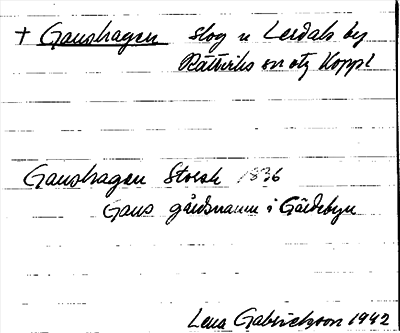 + Ganshagen slog n Lerdals by
Rättviks sn otj Koppl
Ganshagen Storsk 1836
Gans gårdsnamn i Gärdebyn
Lena Gabrielsson 1942